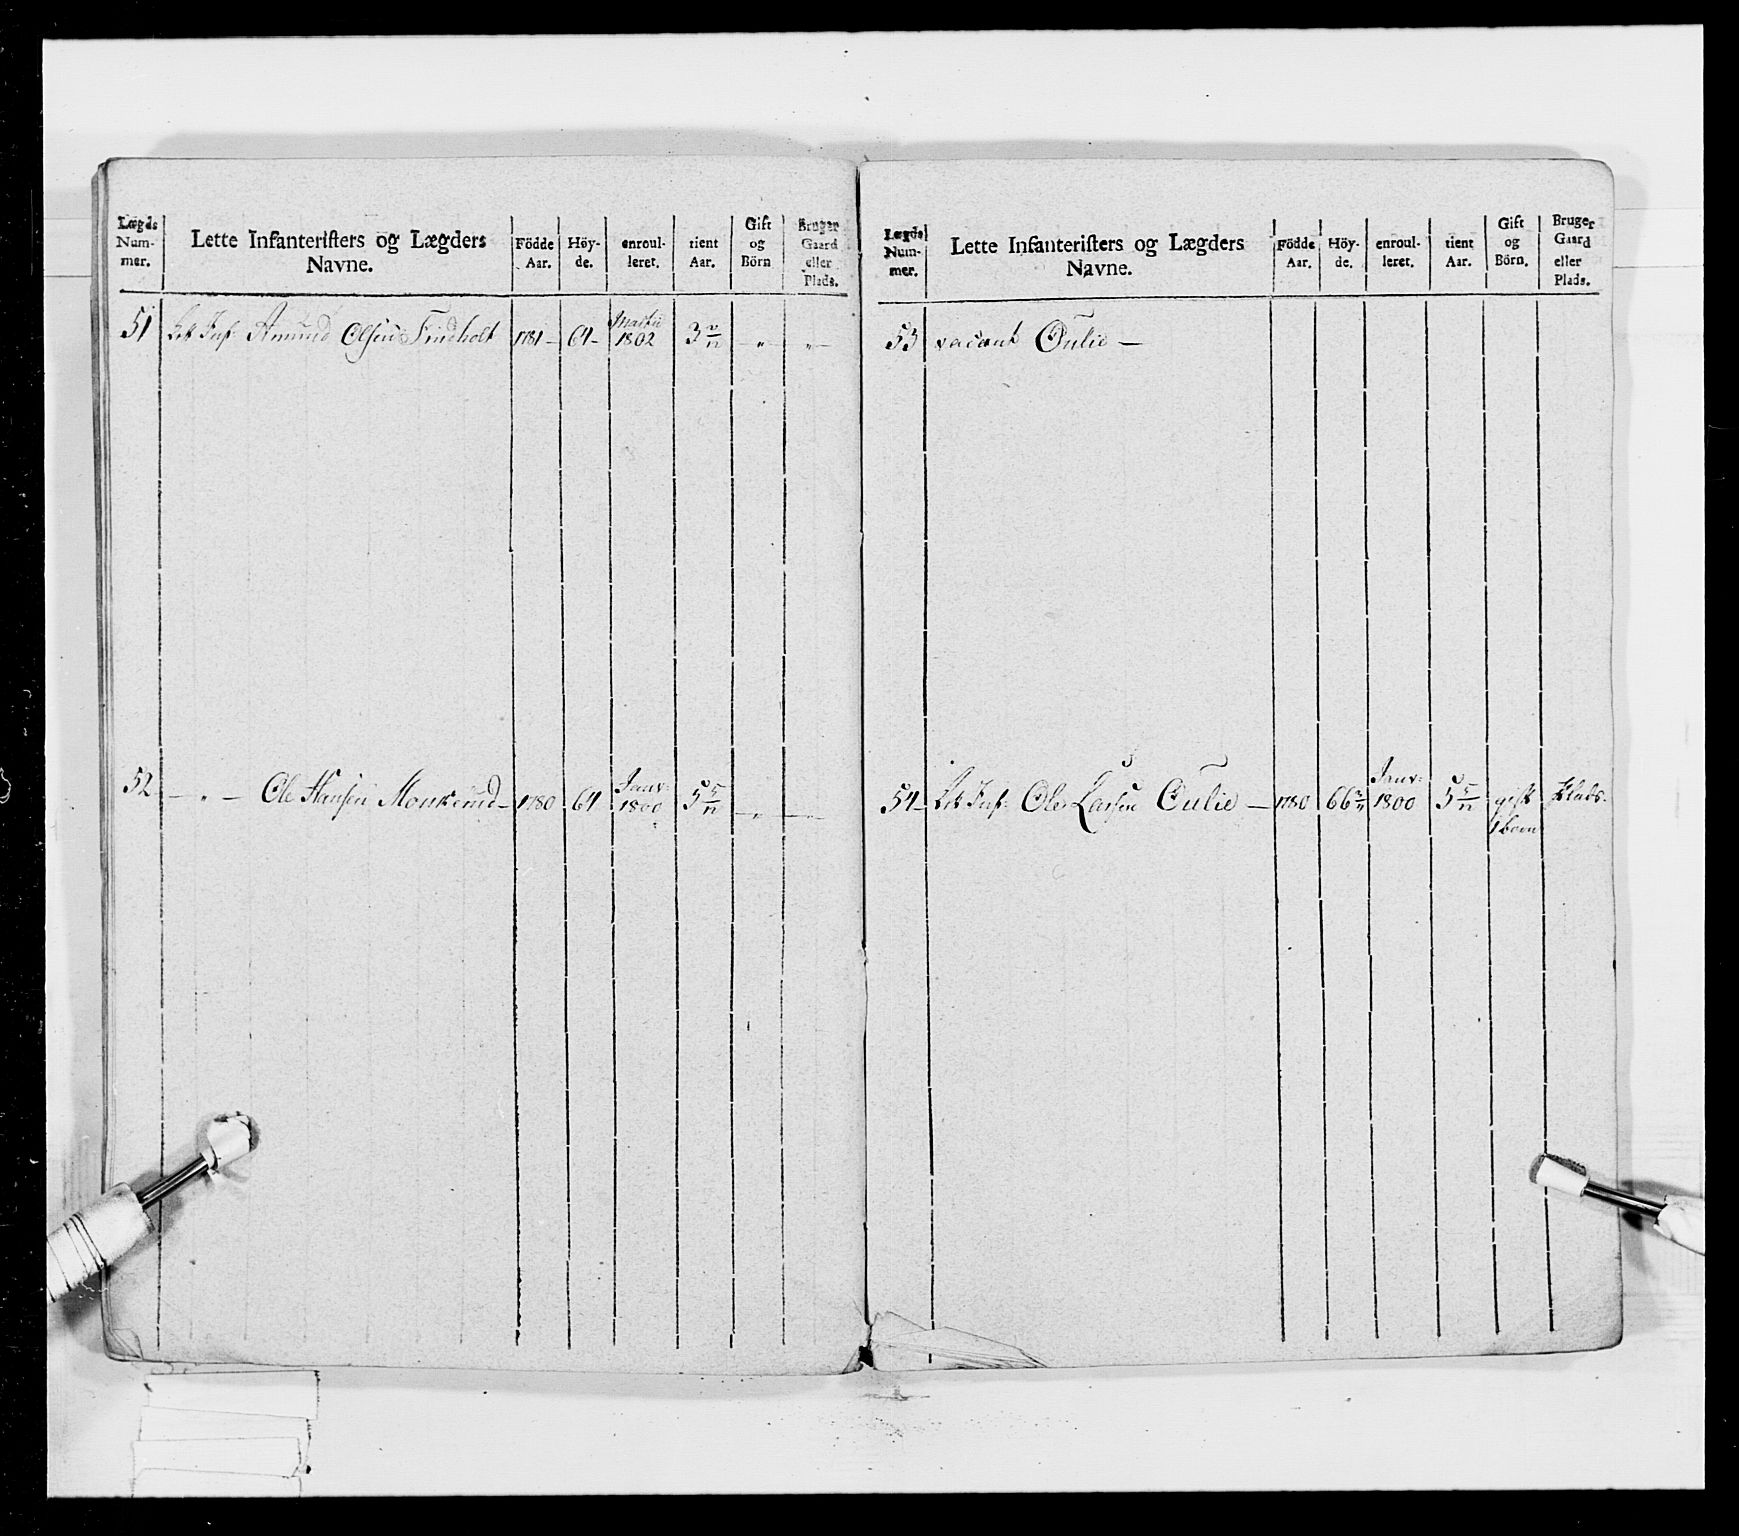 Lægds Num-mer. | Lette Infanteristers og Lægders Navne. | Födde Aar. | Höy-de. | enroul-leret. | tient Aar. | Gift og Börn | Bruger Gaard eller Plads.
51 Let Inf: Amund Olsen Findholt 1781 – 64 – Martii 1802 3 – " – – " –
52 – " – Ole Hansen Monkerud – 1780 64 Janv: 1800 5 5/12 – " –
Lægds Num-mer. | Lette Infanteristers og Lægders Navne. | Födde Aar. | Höy-de. | enroul-leret. | tient Aar. | Gift og Börn. | Bruger Gaard eller Plads.
53 vacant Oulie –
54 – Let Inf: Ole Larsen Oulie – 1780 66 Janv: 1800 5 5/12 gift Plads.
1 barn